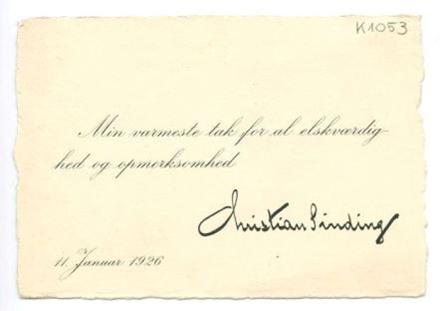 K1053
Min varmeste tak for al elskværdig-
hed og opmerksomhed
Christian Sinding
11. Januar 1926